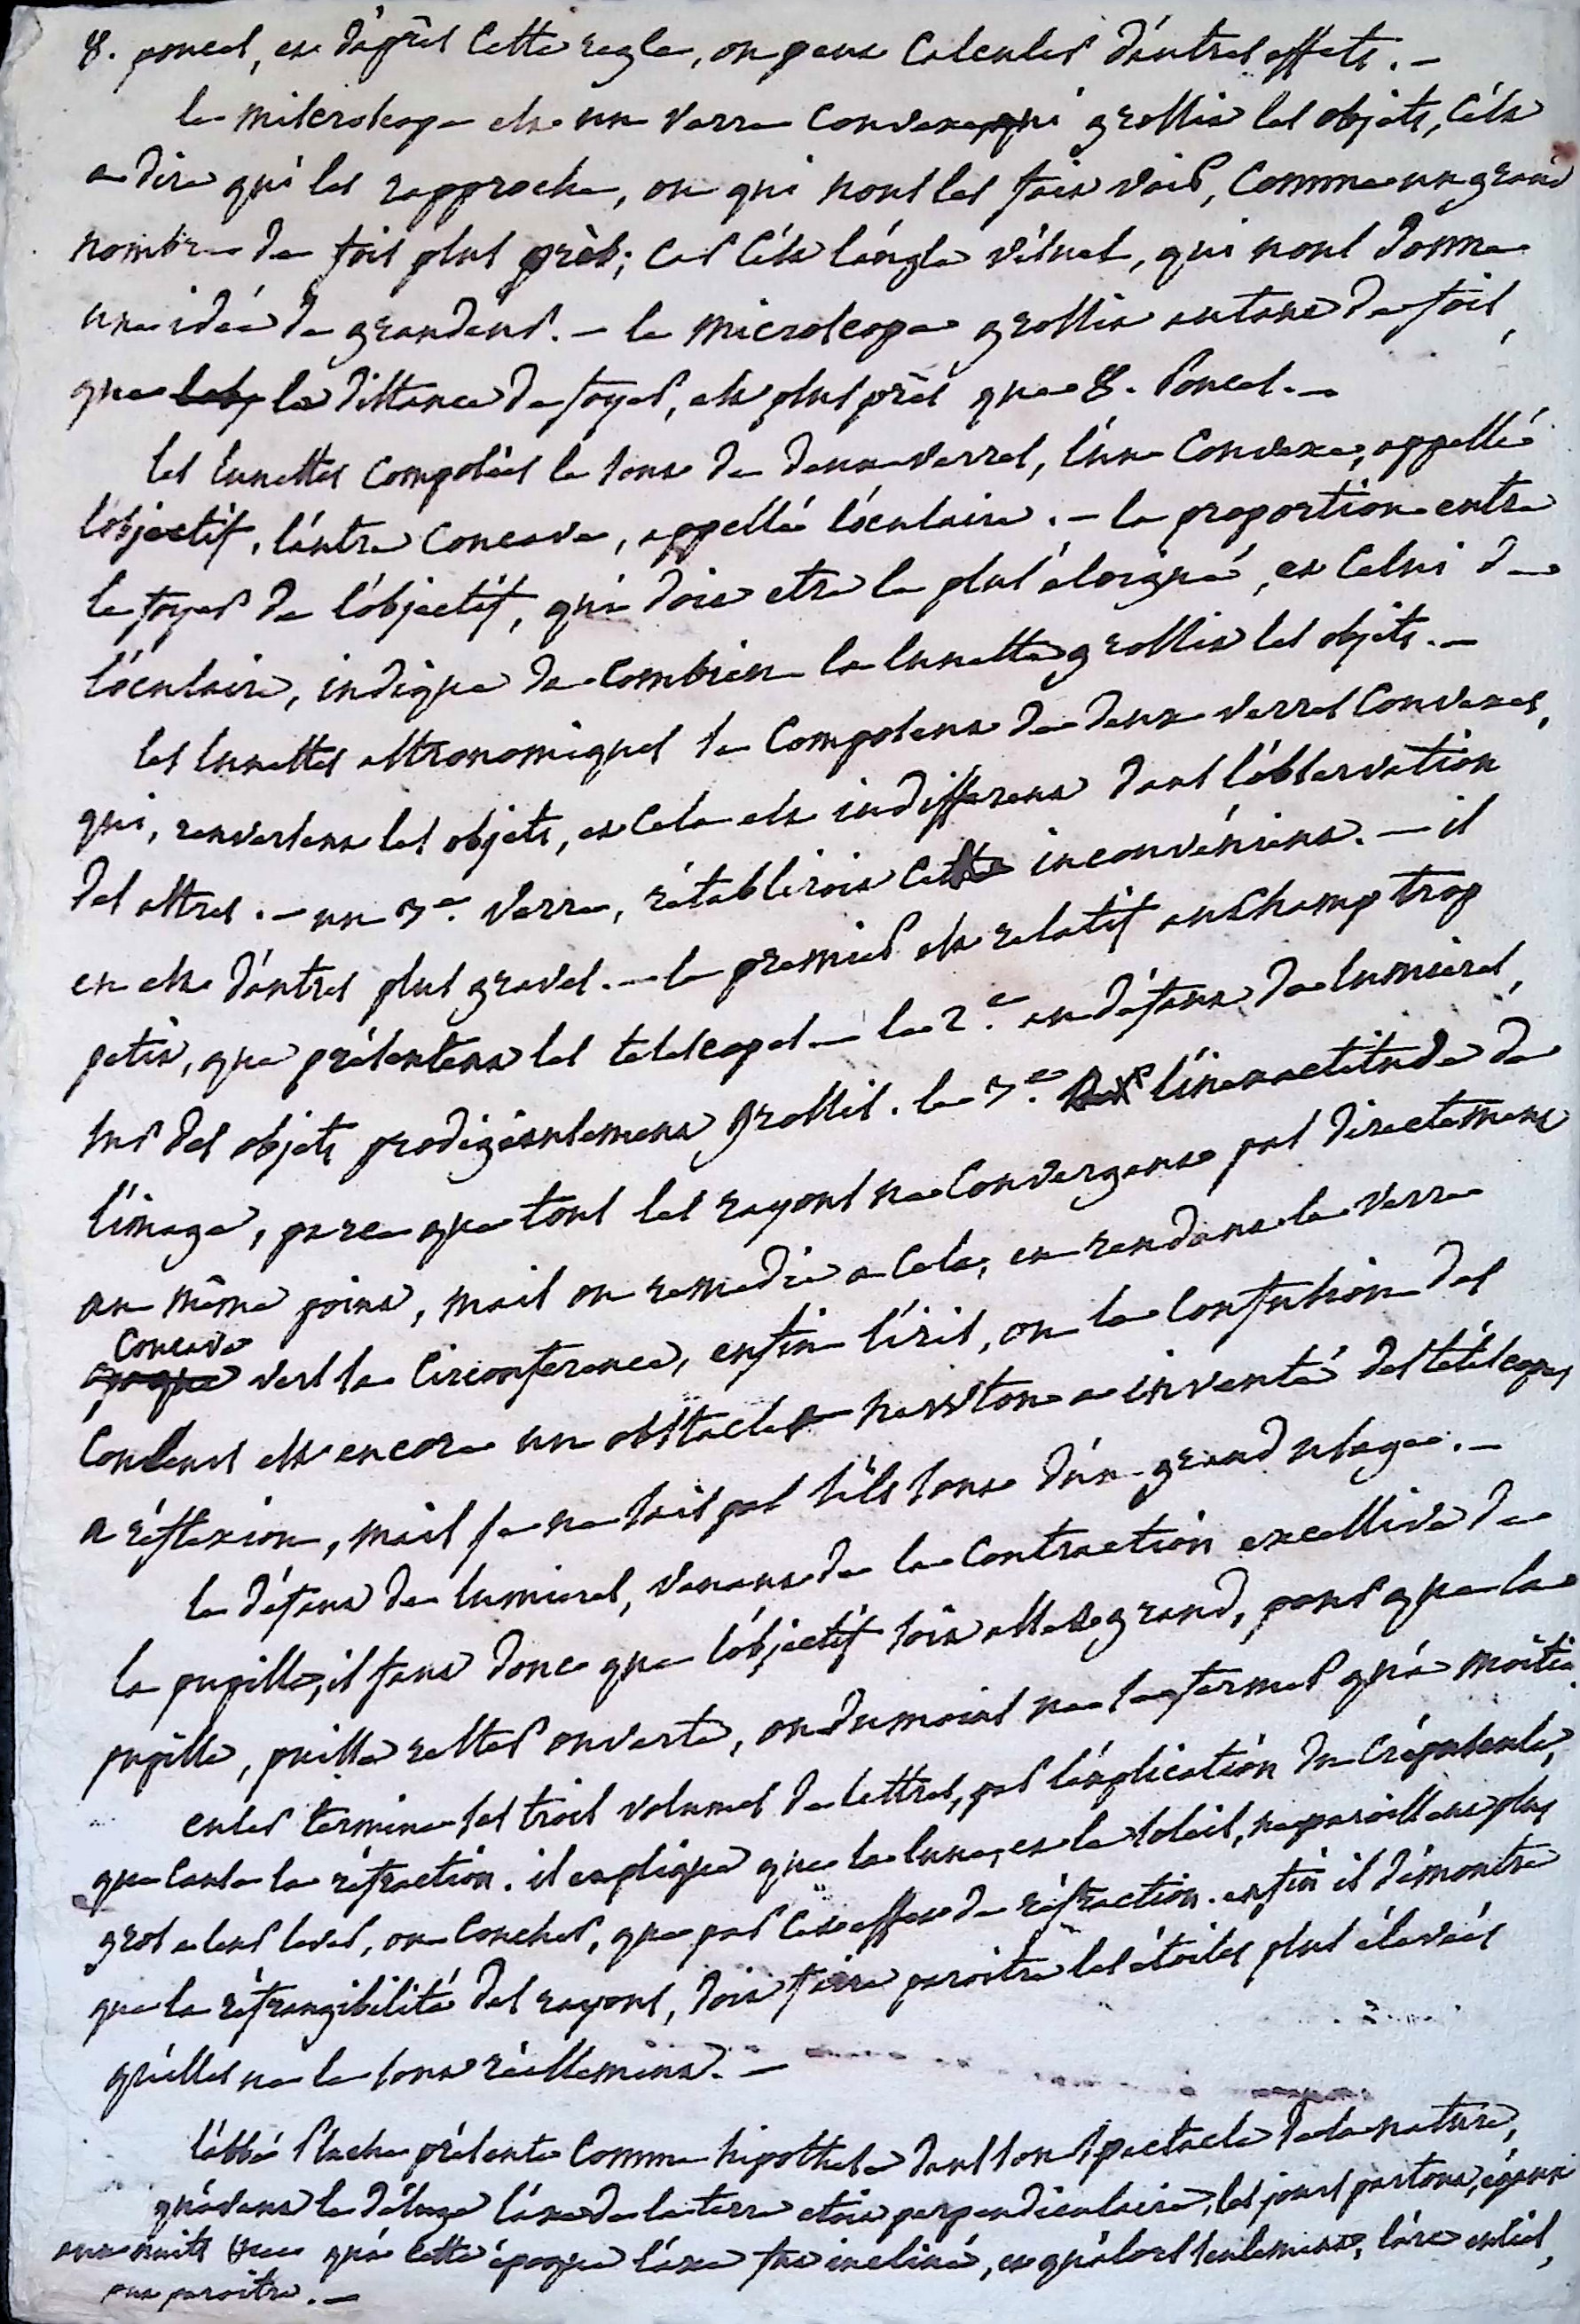 8. pouces, et d'après cette regle, on peut calculer d'autres effets. —
le milcroscope est un verre convexe qui grossit les objets, c'est
a dire qui les rapproche, ou qui nous les fait voir, comme un grand
nombre de fois plus près; car c'est l'angle visuel, qui nous donne
une idée de grandeur. — le microscope grossit autant de fois,
que la distance de foyer, est plus près que 8. pouces. —
les lunettes composées le sont de deux verres, l'un convexe, appellé
l'objectif, l'autre concave, appellé l'oculaire. — la proportion entre
le foyer de l'objectif, qui doit etre le plus éloigné, et celui de
l'oculaire, indique de combien la lunette grossit les objets. —
les lunettes astronomiques se composent de deux verres convexes,
qui, renversent les objets, et cela est indifferent dans l'observation
des astres. — un 3e. verre, rétablirois cet inconvénient. — il
en est d'autres plus graves. — le premier est relatif au champ trop
petit, que présentent les telescopes — le 2.e au défaut de lumieres,
sur des objets prodigieusement grossis. le 3.e l'inexactitude de
l'image, parce que tous les rayons ne convergent pas directement
au même point, mais on remedie a cela, en rendant le verre
concave
vers la circonference, enfin l'iris, ou la confusion des
couleurs est encore un obstacle newton a inventé des téléscopes
a réflexion, mais je ne sais pas s'ils sont d'un grand usage. —
le défaut de lumieres, venant de la contraction excessive de
la pupille, il faut donc que l'objectif soit assez grand, pour que la
pupille, puisse rester ouverte, ou du moins ne se fermer qu'a moitié.
euler termine ses trois volumes de lettres, par l'explication du crépuscule,
que cause la réfraction. il explique que la lune, et le soleil, ne paroissent plus
gros a leur lever, ou coucher, que par cet effet de réfraction. enfin il démontre
que la réfrangibilité des rayons, doit faire paroitre les étoiles plus élevées
qu'elles ne le sont réellement. —
l'abbé Pluche présente comme hipothese dans son spectacle de la nature,
qu'avant le déluge l'axe de la terre etoit perpendiculaire, les jours partout, égaux
aux nuits qu'a cette époque l'axe fut incliné, et qu'alors seulement, l'arc en ciel,
put paroitre. —